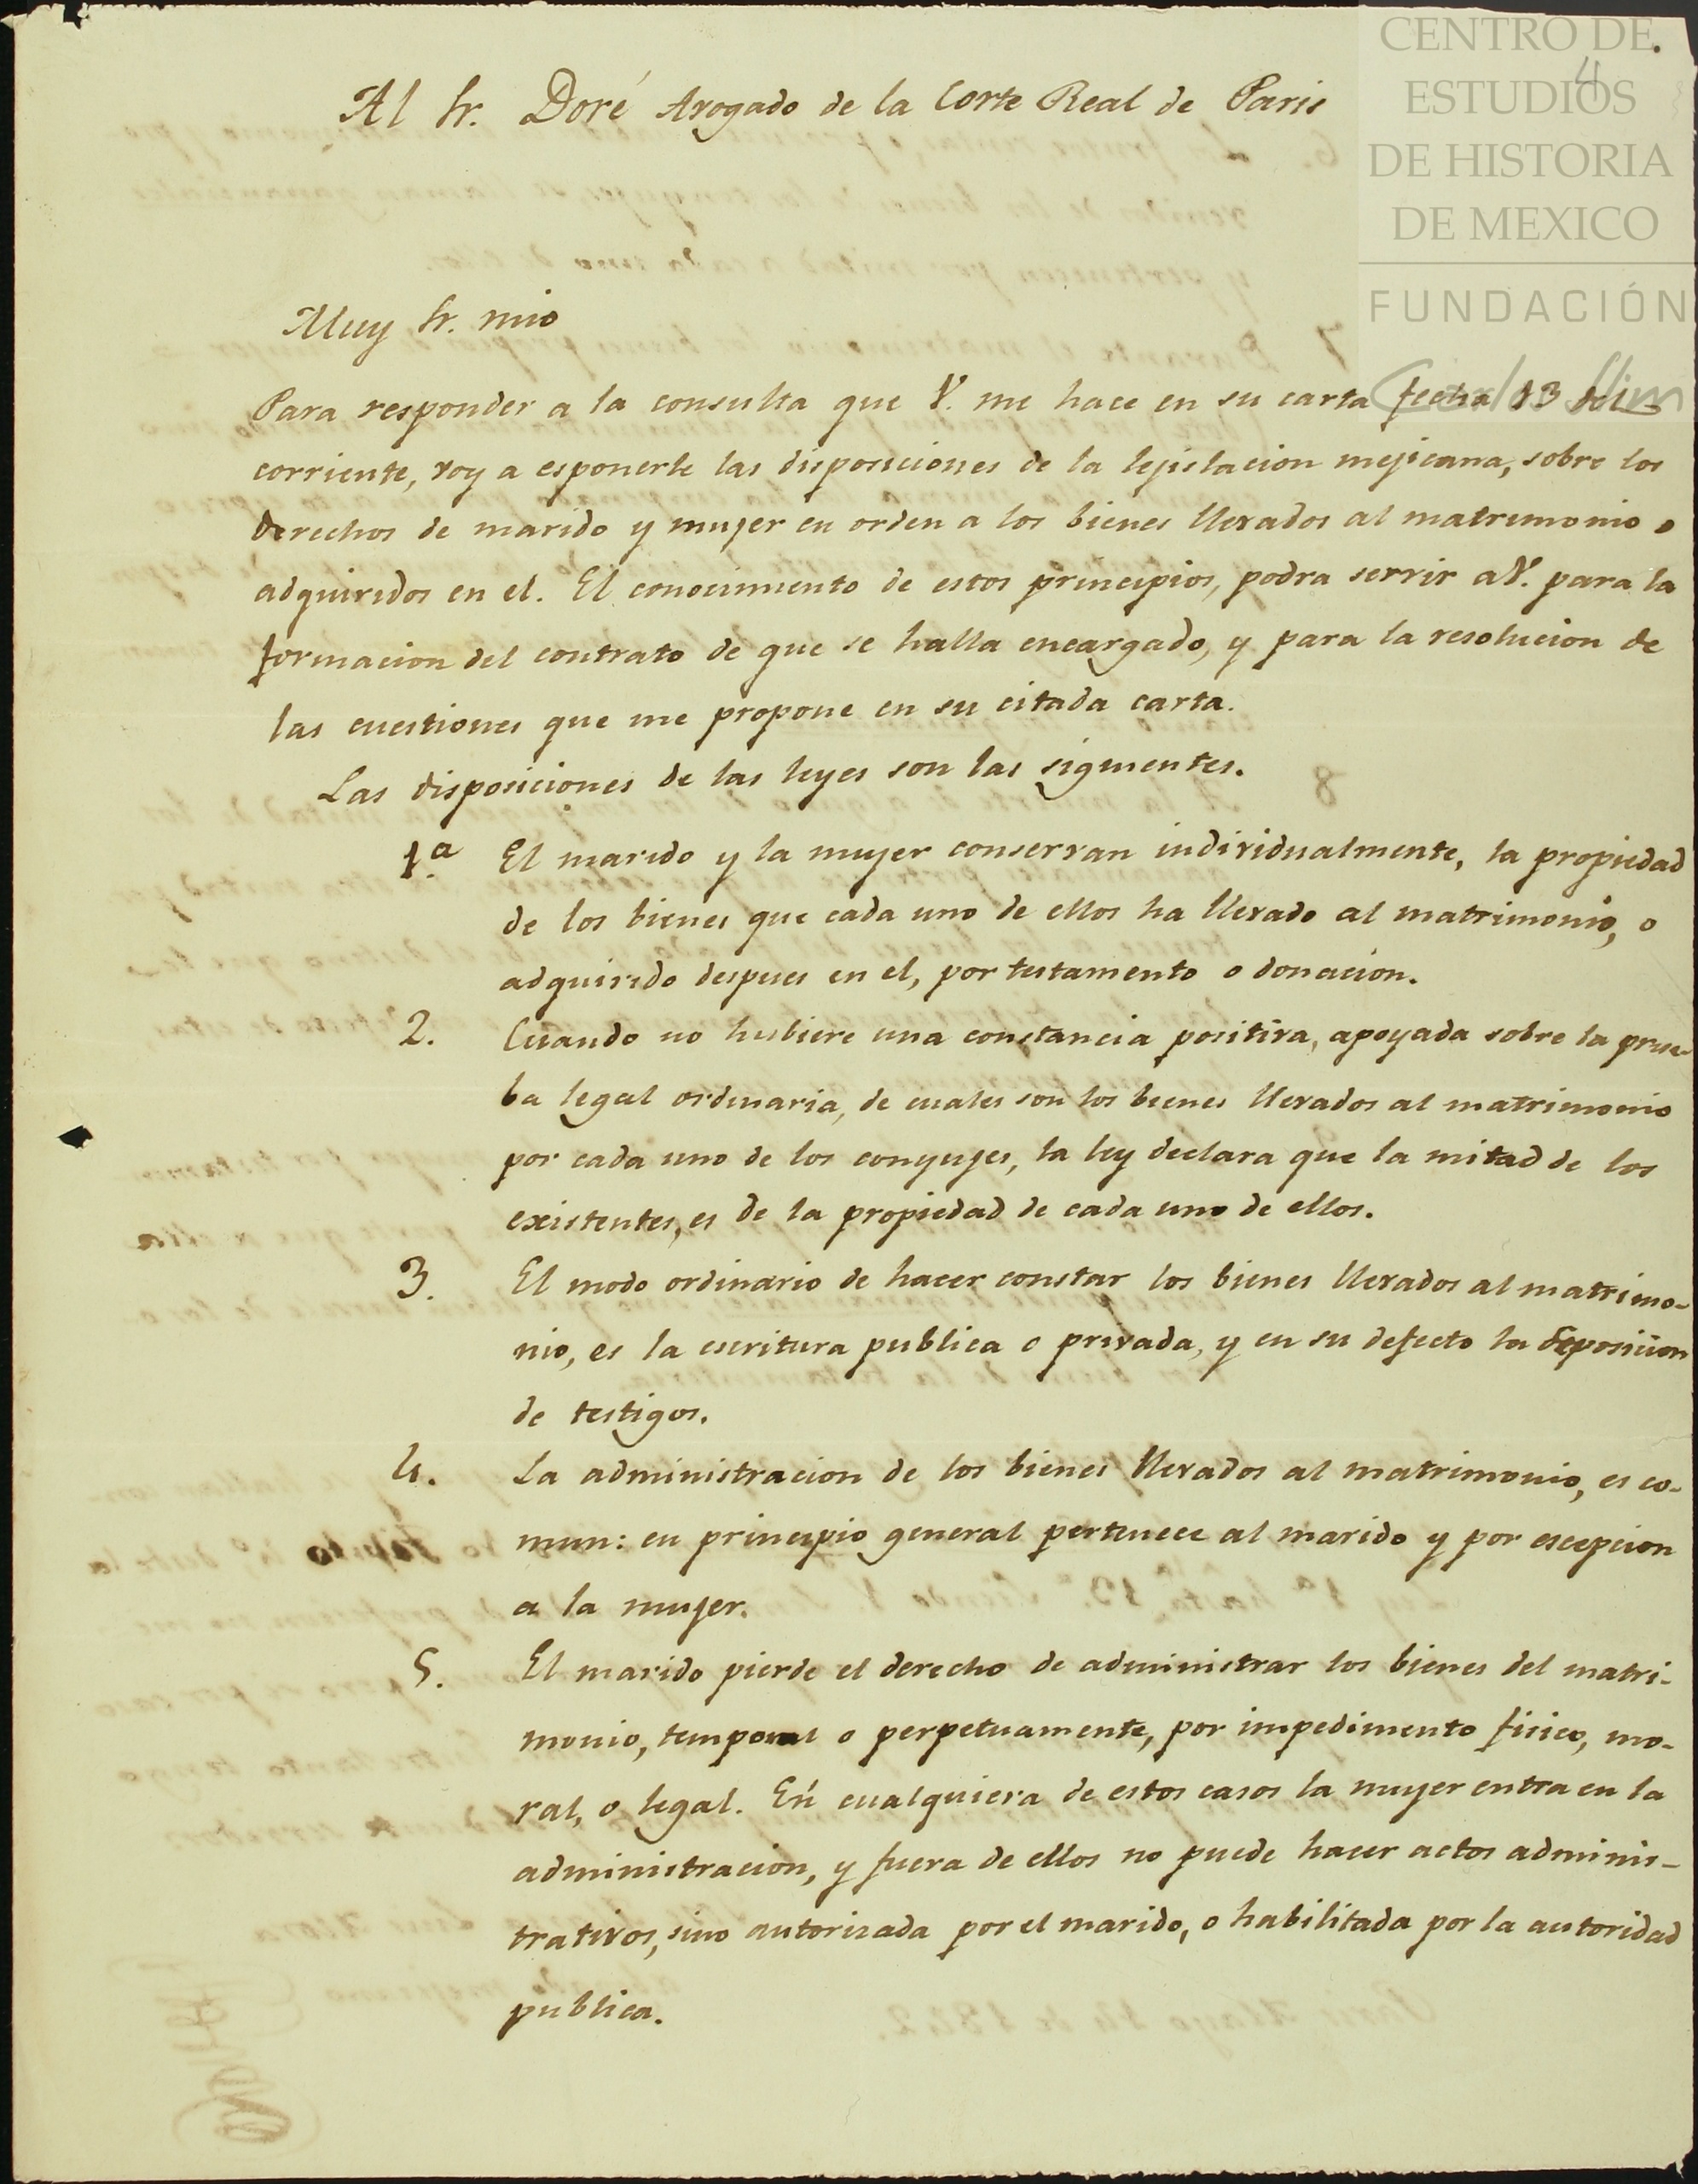 CENTRO DE
ESTUDIOS
DE HISTORIA
DE MEXICO
FUNDACIÓN
Carlos Slim
4
Al Sr. Doré Avogado de la Corte Real de Paris
Muy Sr. mio
Para responder a la consulta que V. me hace en su carta fecha 13 del
corriente, voy a esponerle las disposiciones de la lejislacion mejicana, sobre los
derechos de marido y mujer en orden a los bienes llevados al matrimonio o
adquiridos en el. El conocimiento de estos principios, podra servir a V. para la
formacion del contrato de que se halla encargado, y para la resolucion de
las cuestiones que me propone en su citada carta.
Las disposiciones de las leyes son las siguientes.
1.ª El marido y la mujer conservan individualmente, la propiedad
de los bienes que cada uno de ellos ha llevado al matrimonio, o
adquirido despues en el, por testamento o donacion.
2. Cuando no hubiere una constancia positiva, apoyada sobre la prue-
ba legal ordinaria, de cuales son los bienes llevados al matrimonio
por cada uno de los conyujes, la ley declara que la mitad de los
existentes, es de la propiedad de cada uno de ellos.
3. El modo ordinario de hacer constar los bienes llevados al matrimo-
nio, es la escritura publica o privada, y en su defecto la deposicion
de testigos.
4. La administracion de los bienes llevados al matrimonio, es co-
mun: en principio general pertenece al marido y por escepcion
a la mujer.
5. El marido pierde el derecho de administrar los bienes del matri-
monio, temporal o perpetuamente, por impedimento fisico, mo-
ral, o legal. En cualquiera de estos casos la mujer entra en la
administracion, y fuera de ellos no puede hacer actos adminis-
trativos, sino autorizada por el marido, o habilitada por la autoridad
publica.